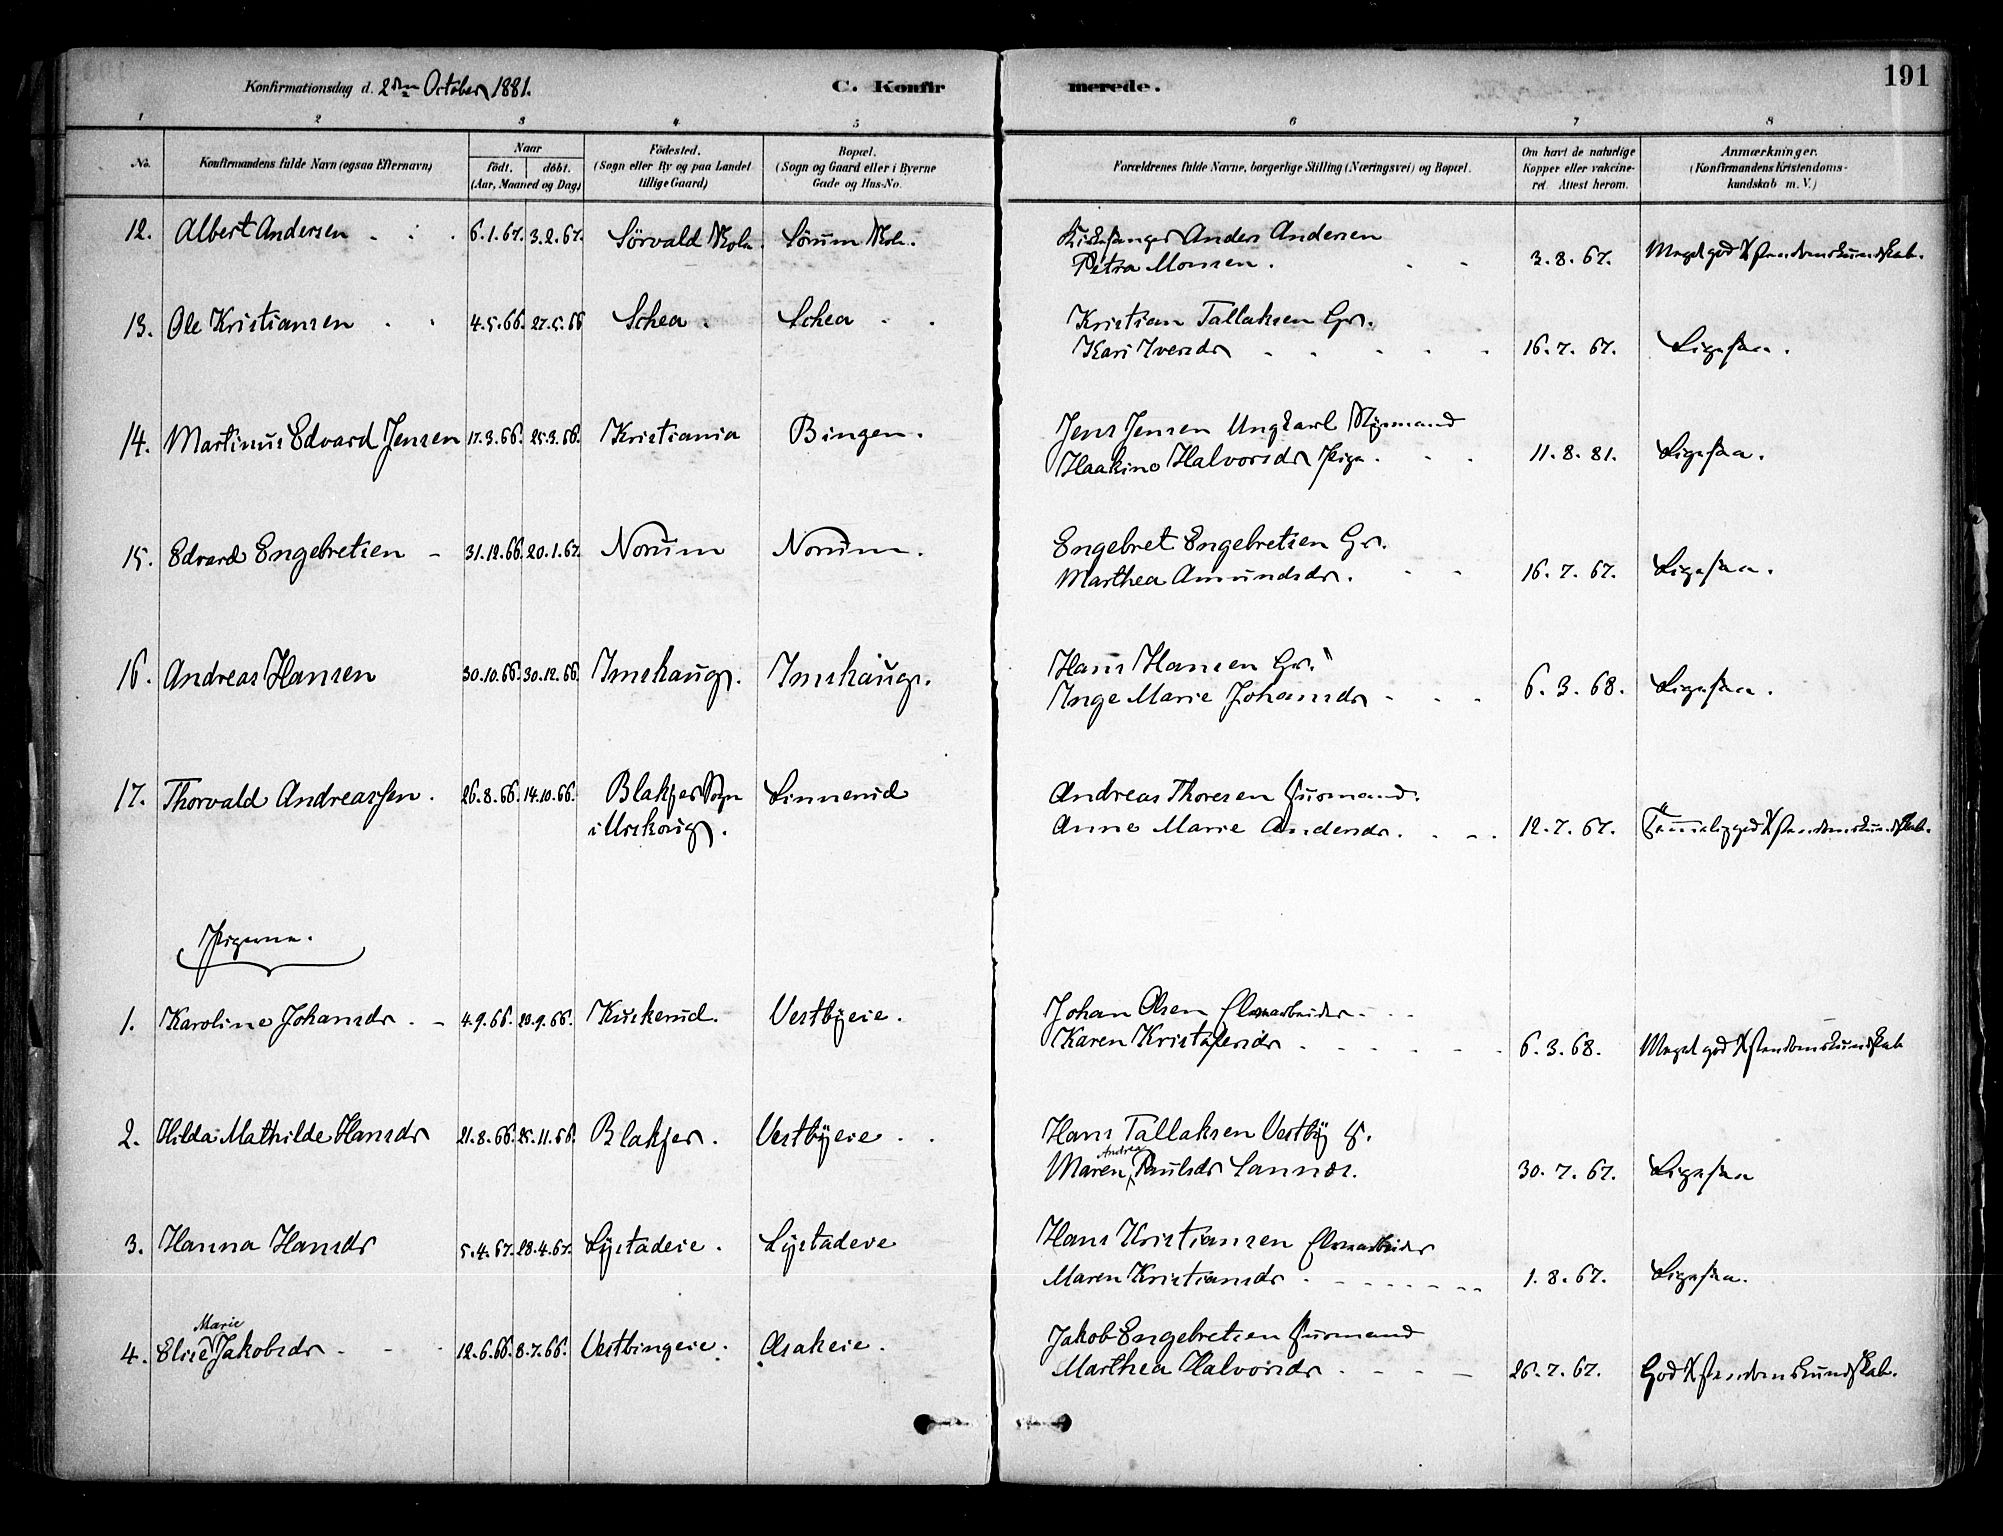 191
Konfirmationsdag d. 2den October 1881.
C. Konfirmerede.
1 2 3 4 5 6 7 8
No. Konfirmandens fulde Navn (ogsaa Efternavn) Naar födt. döbt. (Aar, Maaned og Dag) Födested. (Sogn eller By og paa Landet tillige Gaard) Bopæl. (Sogn og Gaard eller i Byerne Gade og Hus-No. Forældrenes fulde Navne, borgerlige Stilling (Næringsvei) og Bopæl. Om havt de naturlige Kopper eller vakcineret. Attest herom. Anmærkninger. (Konfirmandens Kristendomskundskab m. V.)
12. Albert Andersen 6.1.67. 3.2.67. Sörvald Skole. Sörum Skole. Kirkesanger Anders Andersen
Petra Monsen. 3.8.67. Meget god Xstendomskundskab.
13. Ole Kristiansen 4.5.66. 27.5.66 Schea. Schea Kristian Tallaksen Gr.
Kari Iversdr 16.7.67. Ligesaa.
14. Martinus Edvard Jensen 17.3.66. 25.3.66. Kristiania Bingen. Jens Jensen Ungkarl
Haakine Halvorsdr Pige. 11.8.81. Ligesaa.
15. Edvard Engebretsen 31.12.66. 20.1.67. Norum Norum. Engebret Engebretsen Gr.
Marthea Amundsdr. 16.7.67. Ligesaa.
16. Andreas Hansen 30.10.66. 30.12.66. Imshaug. Imshaug. Hans Hansen Gr.
Inge Marie Johansdr 6.3.68. Ligesaa.
17. Thorvald Andreassen. 26.8.66. 14.10.66. Blakjer Sogn Linnerud Andreas Thoresen Husmand.
i Urskoug. Anne Marie Andersdr. 12.7.67. Temmelig god Xstendomskundskab.
Pigerne.
1. Karoline Johansdr. 4.9.66. 20.9.66. Kuskerud. Vestbyeie. Johan Olsen Elvearbeider
Karen Kristofersdr 6.3.68. Meget god Xstendomskundskab
2. Hilda Mathilde Hansdr 21.8.66. 25.11.66. Blakjer. Vestbyeie. Hans Tallaksen Vestby G.
Maren Andrea Paulsdr Sannes. 30.7.67. Ligesaa
3. Hanna Hansdr 5.4.67. 28.4.67. Lystadeie. Lystadeie Hans Kristiansen Elvearbeider
Maren Kristiansdr 1.8.67. Ligesaa.
4. Elise Marie Jakobsdr 12.6.66. 8.7.66. Vestbingeie. Asakeie. Jakob Engebretsen Husmand
Marthea Halvorsdr 26.7.67. God Xstendomskundskab.